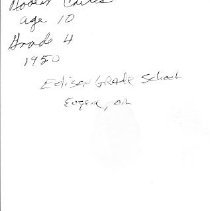 age 10
Grade 4
1950
Edison Grade School
Eugene, OR